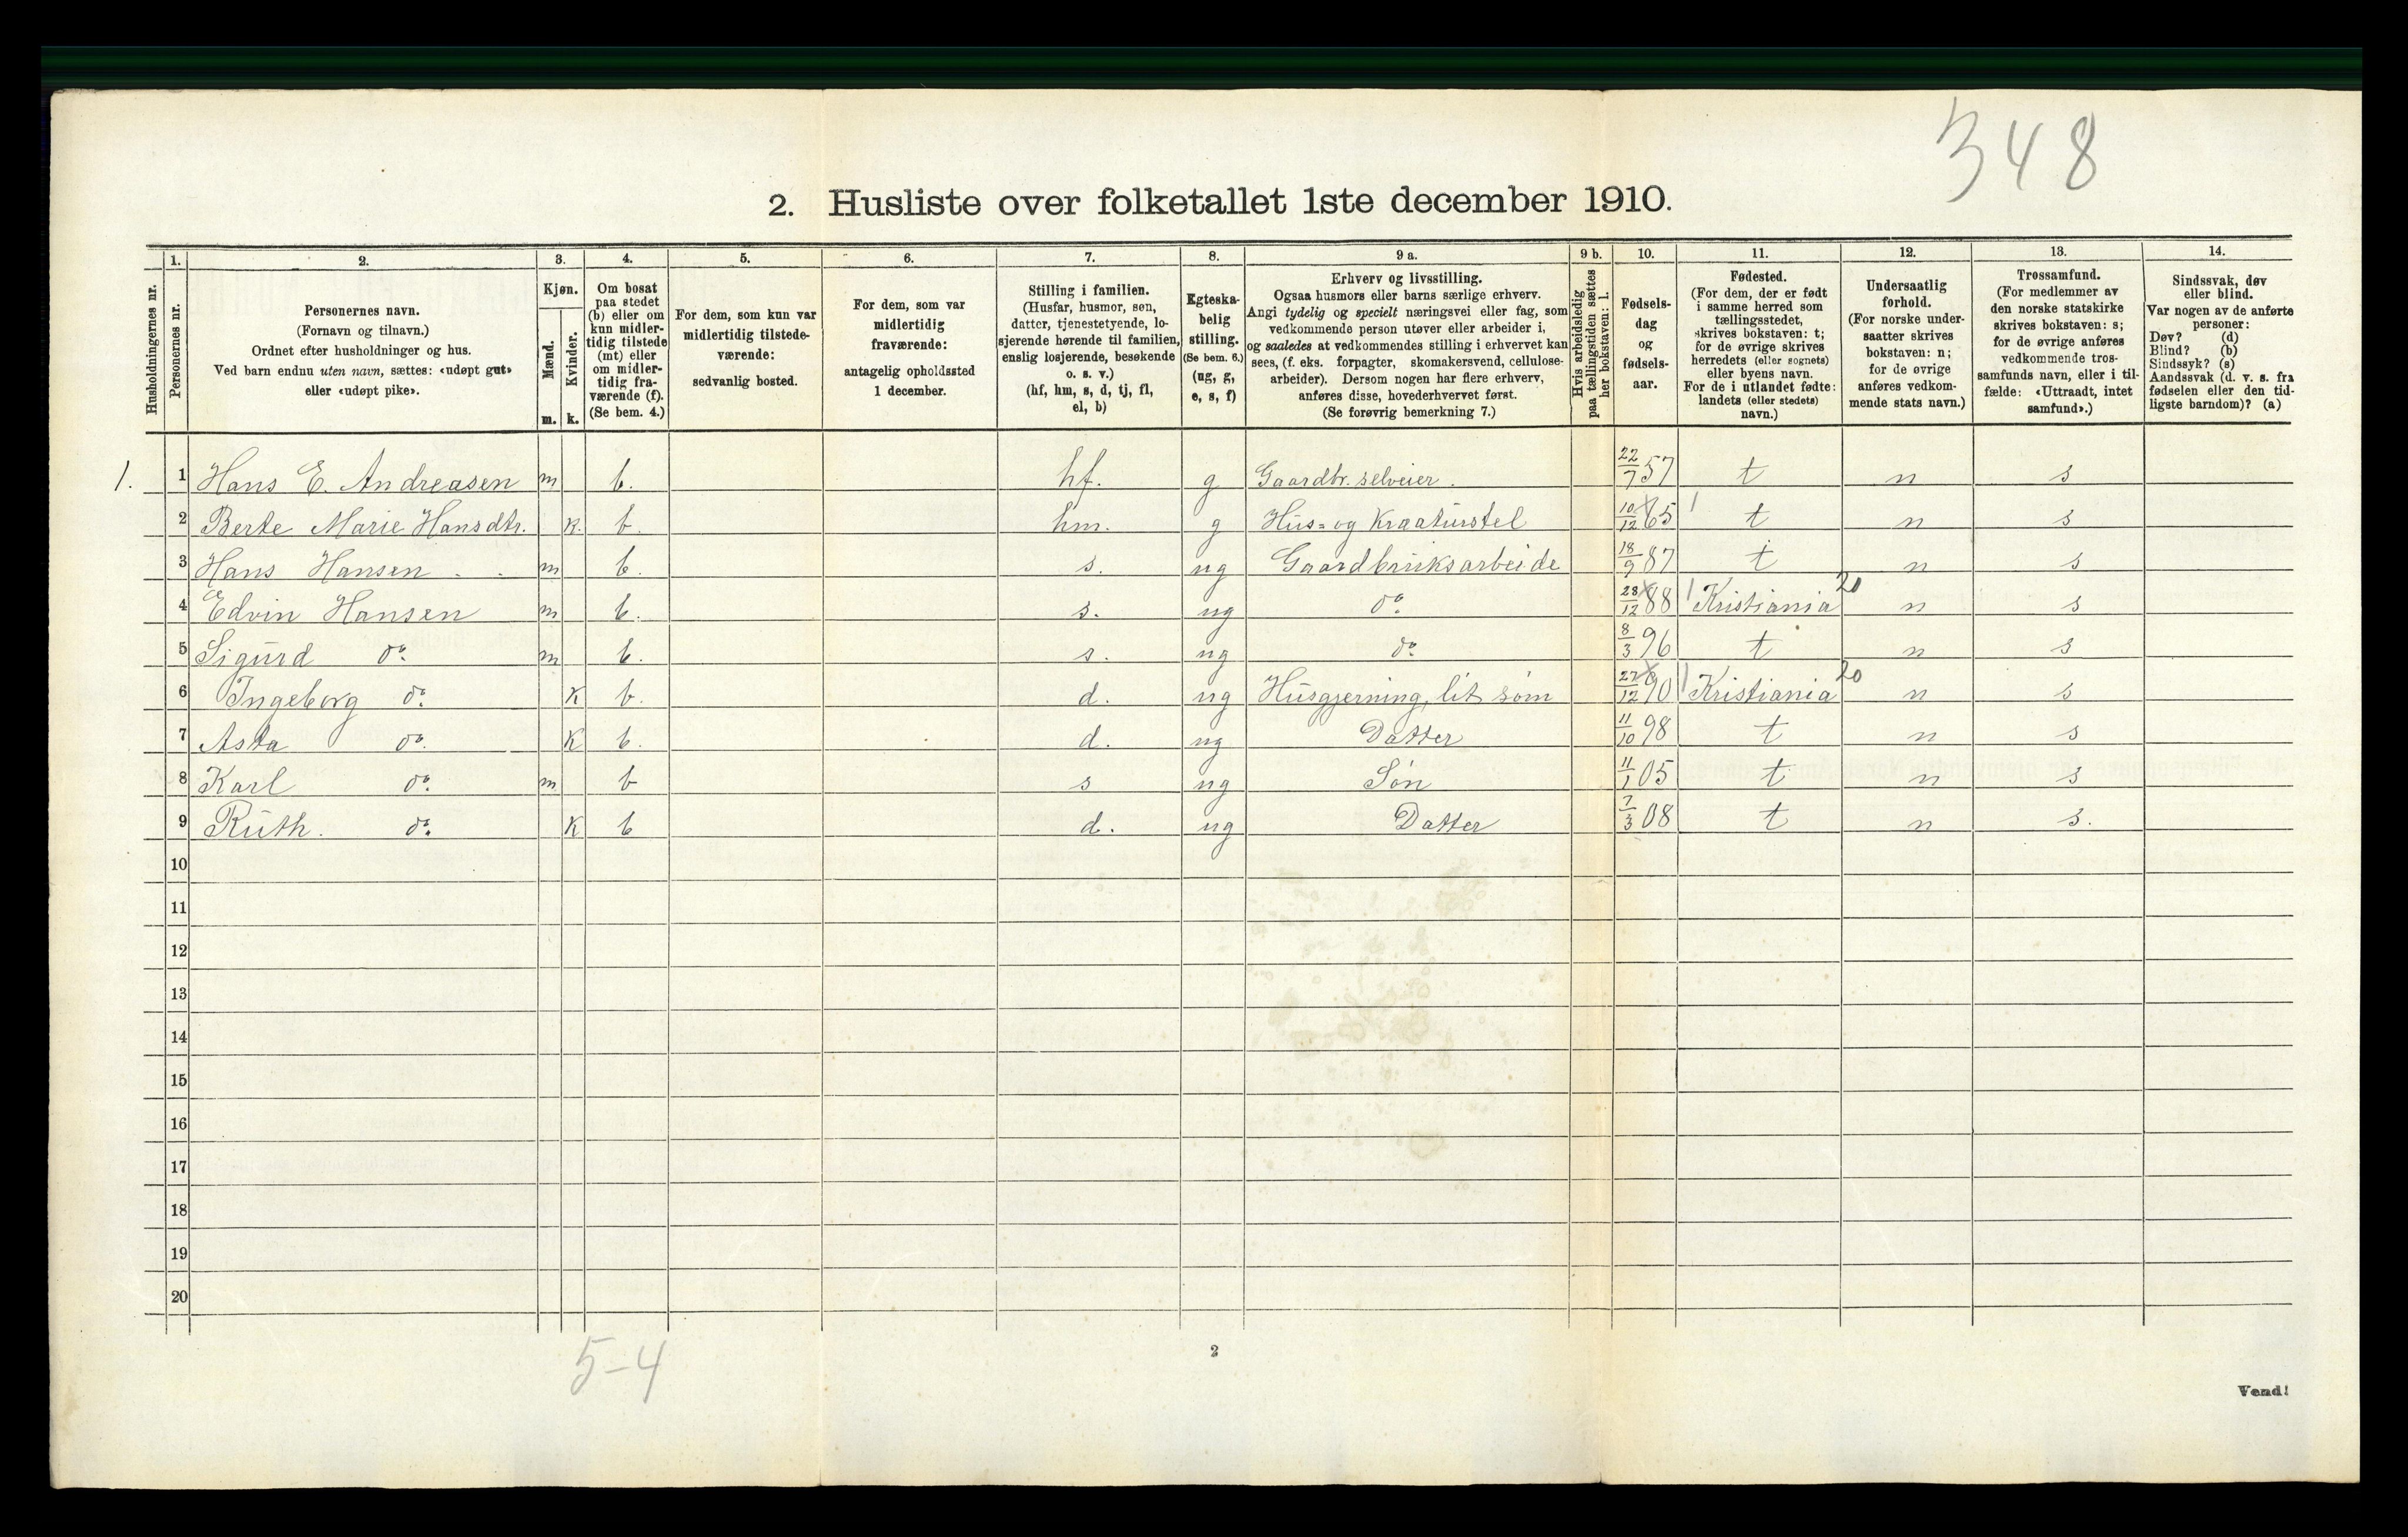 348
2. Husliste over folketallet 1ste december 1910.
Husholdningernes nr.
1.
Personernes nr.
2.
Personernes navn.
(Fornavn og tilnavn.)
Ordnet efter husholdninger og hus.
Ved barn endnu uten navn, sættes: «udøpt gut»
eller «udøpt pike».
3.
Kjøn.
Mænd.
m.
Kvinder.
k.
4.
Om bosat
paa stedet
(b) eller om
kun midler-
tidig tilstede
(mt) eller
om midler-
tidig fra-
værende (f).
(Se bem. 4.)
5.
For dem, som kun var
midlertidig tilstede-
værende:
sedvanlig bosted.
6.
For dem, som var
midlertidig
fraværende:
antagelig opholdssted
1 december.
7.
Stilling i familien.
(Husfar, husmor, søn,
datter, tjenestetyende, lo-
sjerende hørende til familien,
enslig losjerende, besøkende
o. s. v.)
(hf, hm, s, d, tj, fl,
el, b)
8.
Egteska-
belig
stilling.
(Se bem. 6.)
(ug, g,
e, s, f)
9 a.
Erhverv og livsstilling.
Ogsaa husmors eller barns særlige erhverv.
Angi tydelig og specielt næringsvei eller fag, som
vedkommende person utøver eller arbeider i,
og saaledes at vedkommendes stilling i erhvervet kan
sees, (f. eks. forpagter, skomakersvend, cellulose-
arbeider). Dersom nogen har flere erhverv,
anføres disse, hovederhvervet først.
(Se forøvrig bemerkning 7.)
9 b.
Hvis arbeidsledig
paa tællingstiden sættes
her bokstaven: l.
10.
Fødsels-
dag
og
fødsels-
aar.
11.
Fødested.
(For dem, der er født
i samme herred som
tællingsstedet,
skrives bokstaven: t;
for de øvrige skrives
herredets (eller sognets)
eller byens navn.
For de i utlandet fødte:
landets (eller stedets)
navn.)
12.
Undersaatlig
forhold.
(For norske under-
saatter skrives
bokstaven: n;
for de øvrige
anføres vedkom-
mende stats navn.)
13.
Trossamfund.
(For medlemmer av
den norske statskirke
skrives bokstaven: s;
for de øvrige anføres
vedkommende tros-
samfunds navn, eller i til-
fælde: «Uttraadt, intet
samfund».)
14.
Sindssvak, døv
eller blind.
Var nogen av de anførte
personer:
Døv? (d)
Blind? (b)
Sindssyk? (s)
Aandssvak (d. v. s. fra
fødselen eller den tid-
ligste barndom)? (a)
1. 1 Hans E. Andreasen m b. hf. g Gaardbr. selveier. 22/7 57 t n s
2 Berte Marie Hansdtr. k. b. hm. g Hus= og Kreaturstel 10/12 65 t n s
3 Hans Hansen m b. s. ug Gaardbruksarbeide 18/9 87 t n s
4 Edvin Hansen m b. s. ug do. 28/12 88 Kristiania 20 n s
5 Sigurd do. m b. s. ug do. 8/3 96 t n s
6 Ingeborg do. K b. d. ug Husgjerning, lit søm 27/12 90 Kristiania 20 n s
7 Asta do. K b. d. ug Datter 11/10 98 t n s
8 Karl do. m b s ug Søn 11/1 05 t n s
9 Ruth. do. K b d. ug Datter 7/3 08 t n s.
10
11
12
13
14
15
16
17
18
19
20
5-4
2
Vend!